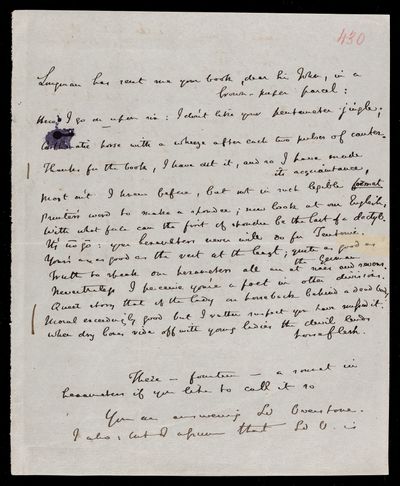 430
Longman has sent me your book, dear Sir John, in a
brown-paper parcel:
Here I go on upon six: I don't like your pentameter jingle;
Asthmatic horse with a wheeze after each two pulses of canter.
Thanks for the book, I have cut it, and so I have made
its acquaintance,
Most on't I knew before, but not in such legible format
Printers word to make a spondee; now look at our English,
With what face can the first of spondee be the last of a dactyle.
It's no go: your hexameters never will do for Teutonic.
Yours are as good as the rest at the least; quite as good as
the German
Truth to speak our hexameters all are at noes and
Nevertheless I perceive you're a poet in other divisions.
Queer story that of the lady on horseback behind a dead body
Moral exceedingly good but I rather suspect you have missed it.
When dry bones ride off with young ladies the devil lends
horseflesh.
There — fourteen — a sonnet in
hexameters if you like to call it so
You are answering Ld Overstone.
I also; but I assume that Ld O. is